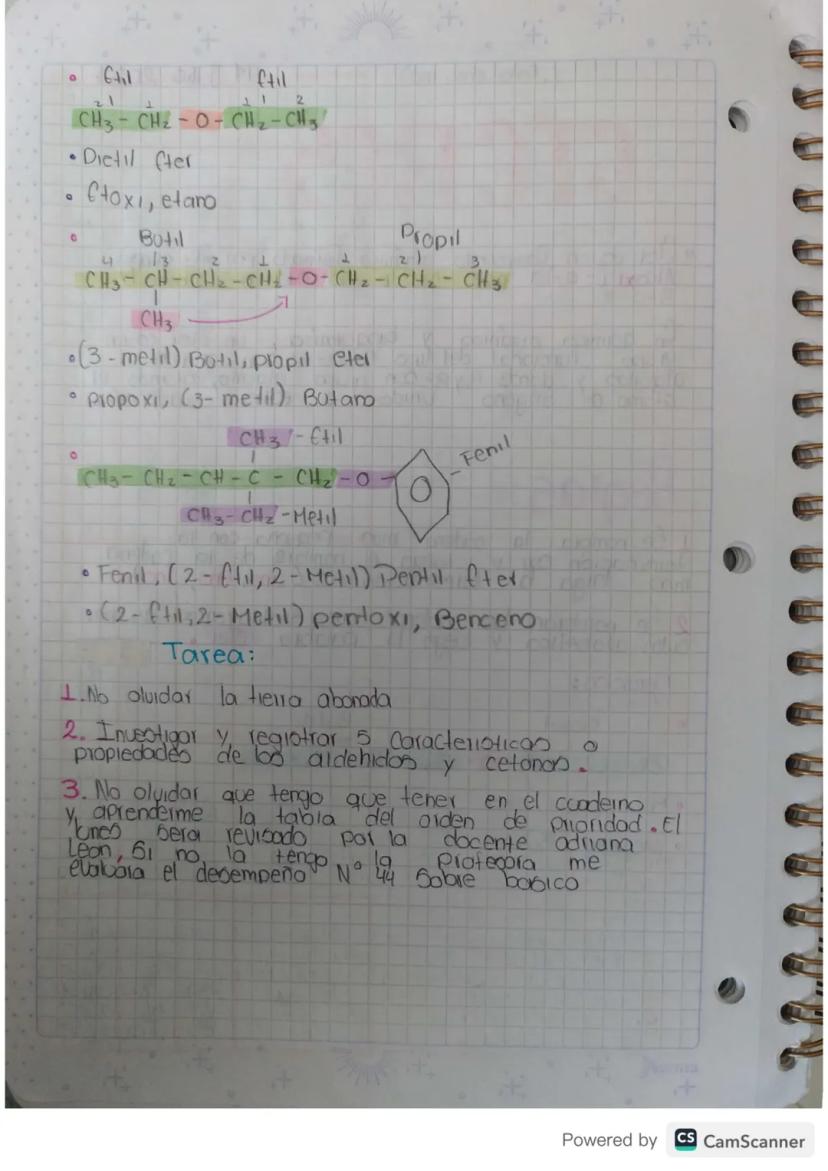 Etil Etil
2 1 1 1 2
CH3 - CH2 - O - CH2 - CH3
• Dietil Eter
• Etoxi, etano
Butil Propil
4 3 2 1 1 2 3
CH3 - CH - CH2 - CH2 - O - CH2 - CH2 - CH3
CH3
• (3 - metil) Butil, propil Eter
• propoxi, (3 - metil) Butano
CH3 - Etil
CH3 - CH2 - CH - C - CH2 - O - Fenil
CH3 - CH2 - Metil
• Fenil, (2 - Etil, 2 - Metil) Pentil Eter
• (2 - Etil, 2 - Metil) pentoxi, Benceno
Tarea:
1. No olvidar la tierra abonada
2. Investigar y registrar 5 Caracteristicas o
propiedades de los aldehidos y cetonas.
3. No olvidar que tengo que tener en el cuaderno
y aprenderme la tabla del orden de prioridad. El
lunes sera revisado por la docente adriana
Leon, Si no la tengo la profesora me
evaluara el desempeño N° 44 Sobre basico
Powered by CS CamScanner